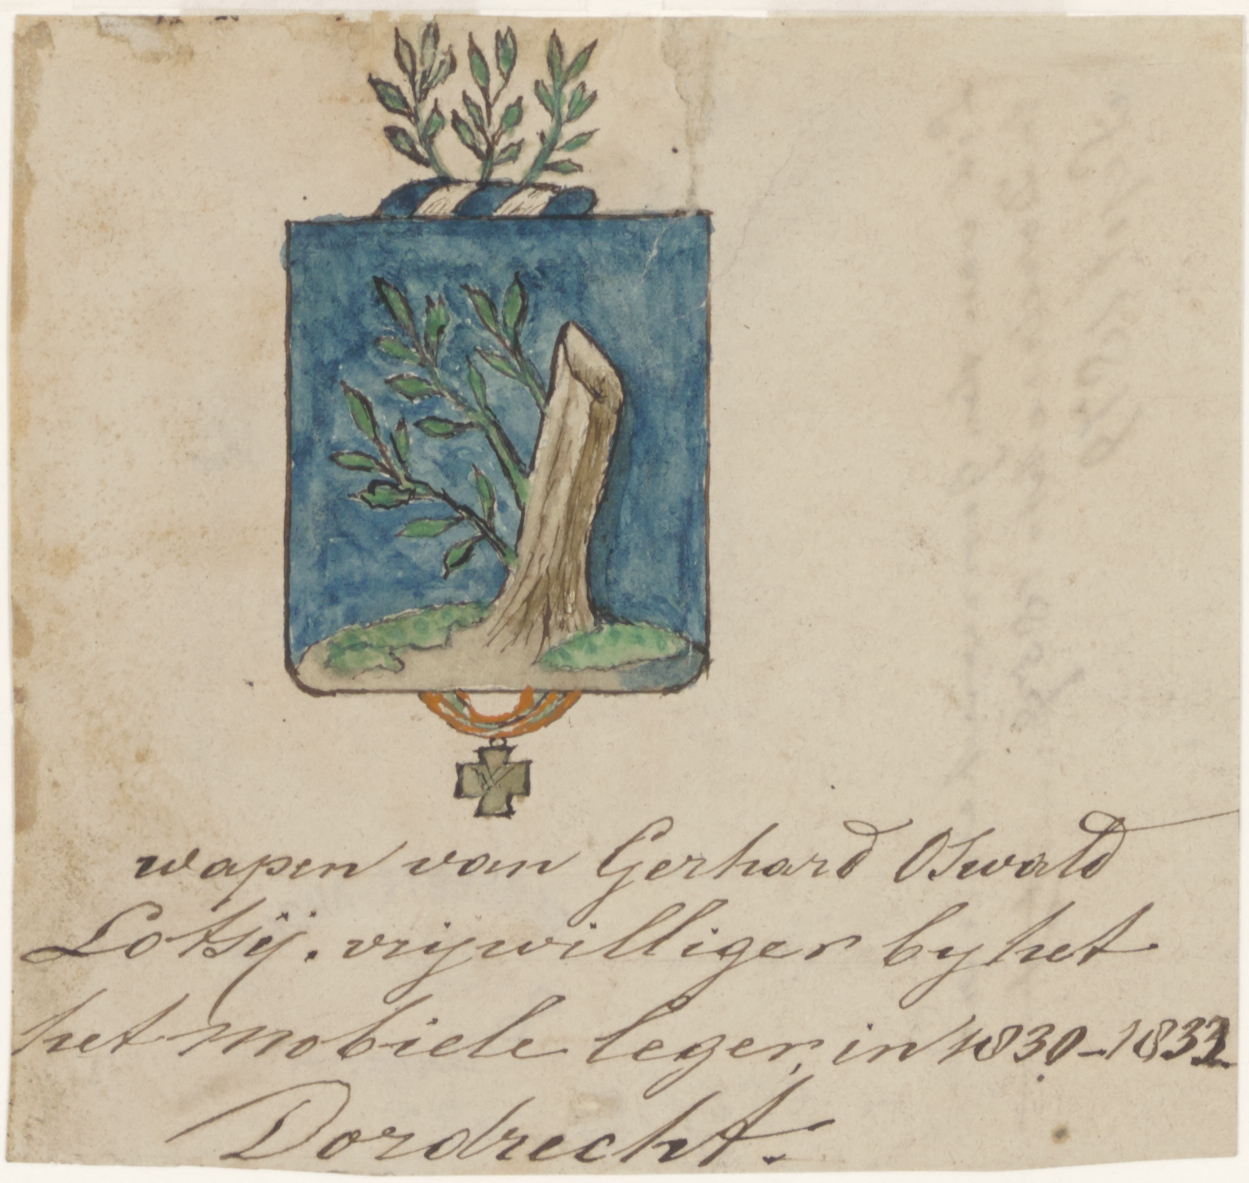 wapen van Gerhard Oswald
Lotsÿ. vrijwilliger by het
het mobiele leger, in 1830-1832
Dordrecht.